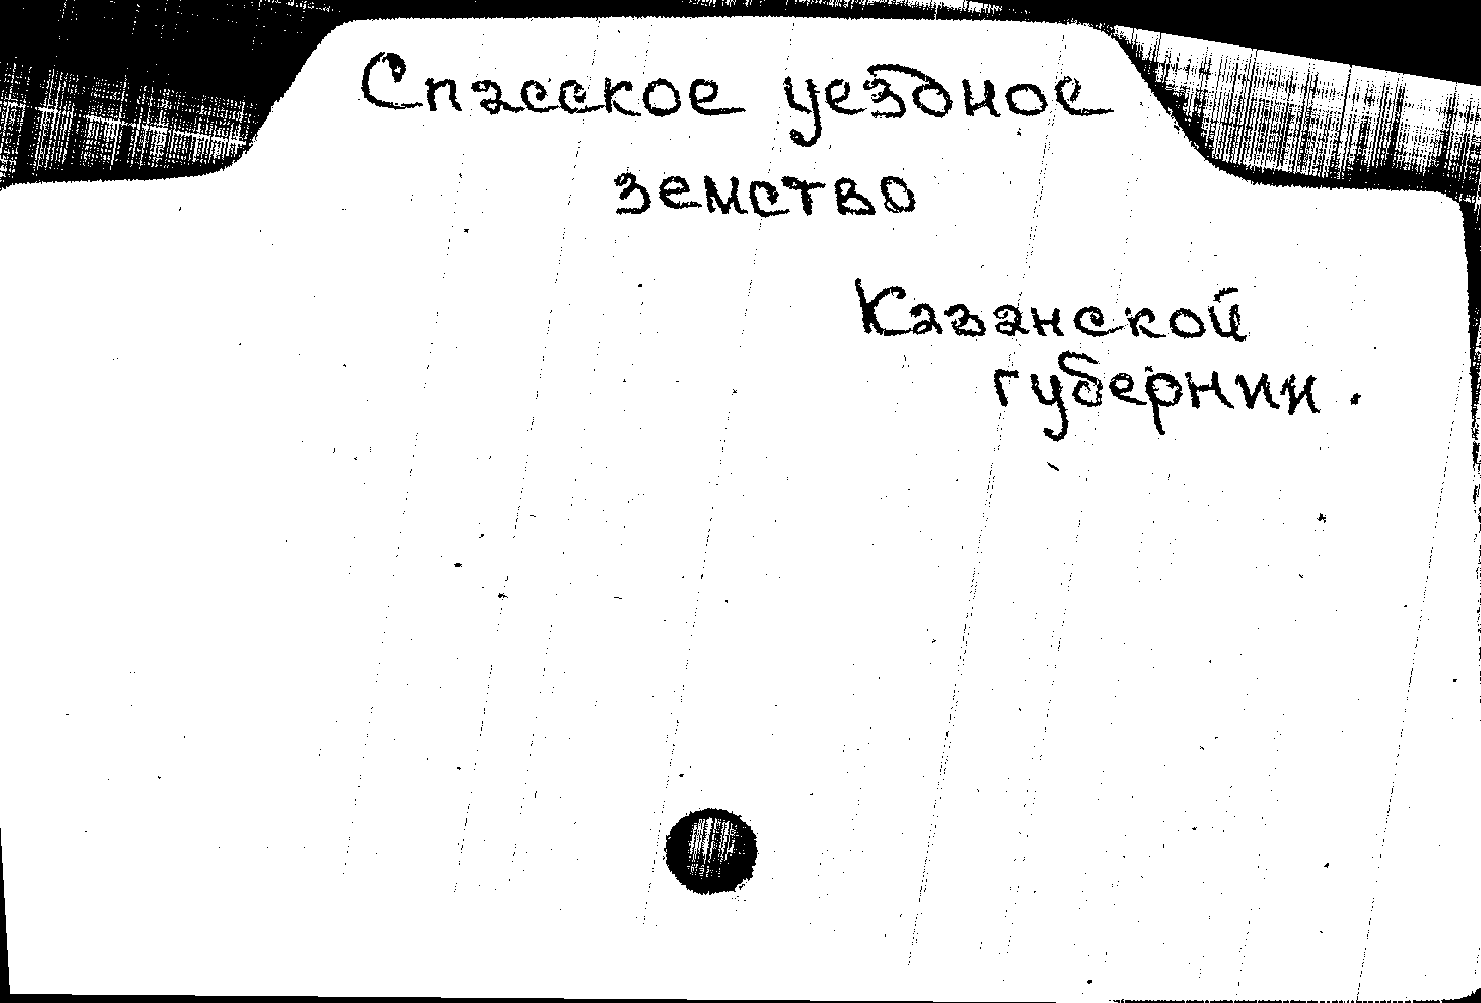 Спасское уездное
земство
Казанской
губернии.